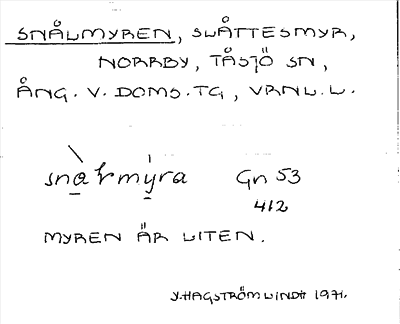 SNÅLMYREN, SLÅTTESMYR,
NORRBY, TÅSJÖ SN,
ÅNG. V. DOMS.TG, VRNL.L.
Gn 53
412
MYREN ÄR LITEN.
Y. HAGSTRÖM LINDH 1971.